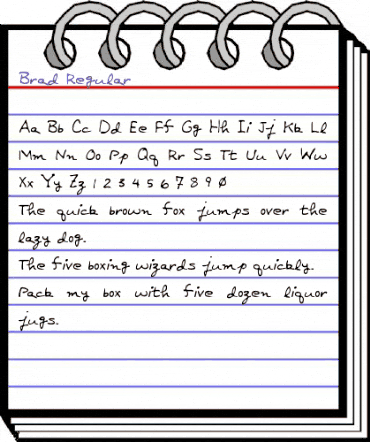 Brad Regular
Aa Bb Cc Dd Ee Ff Gg Hh Ii Jj Kk Ll
Mm Nn Oo Pp Qq Rr Ss Tt Uu Vv Ww
Xx Yy Zz 1 2 3 4 5 6 7 8 9 0
The quick brown fox jumps over the
lazy dog.
The five boxing wizards jump quickly.
Pack my box with five dozen liquor
jugs.